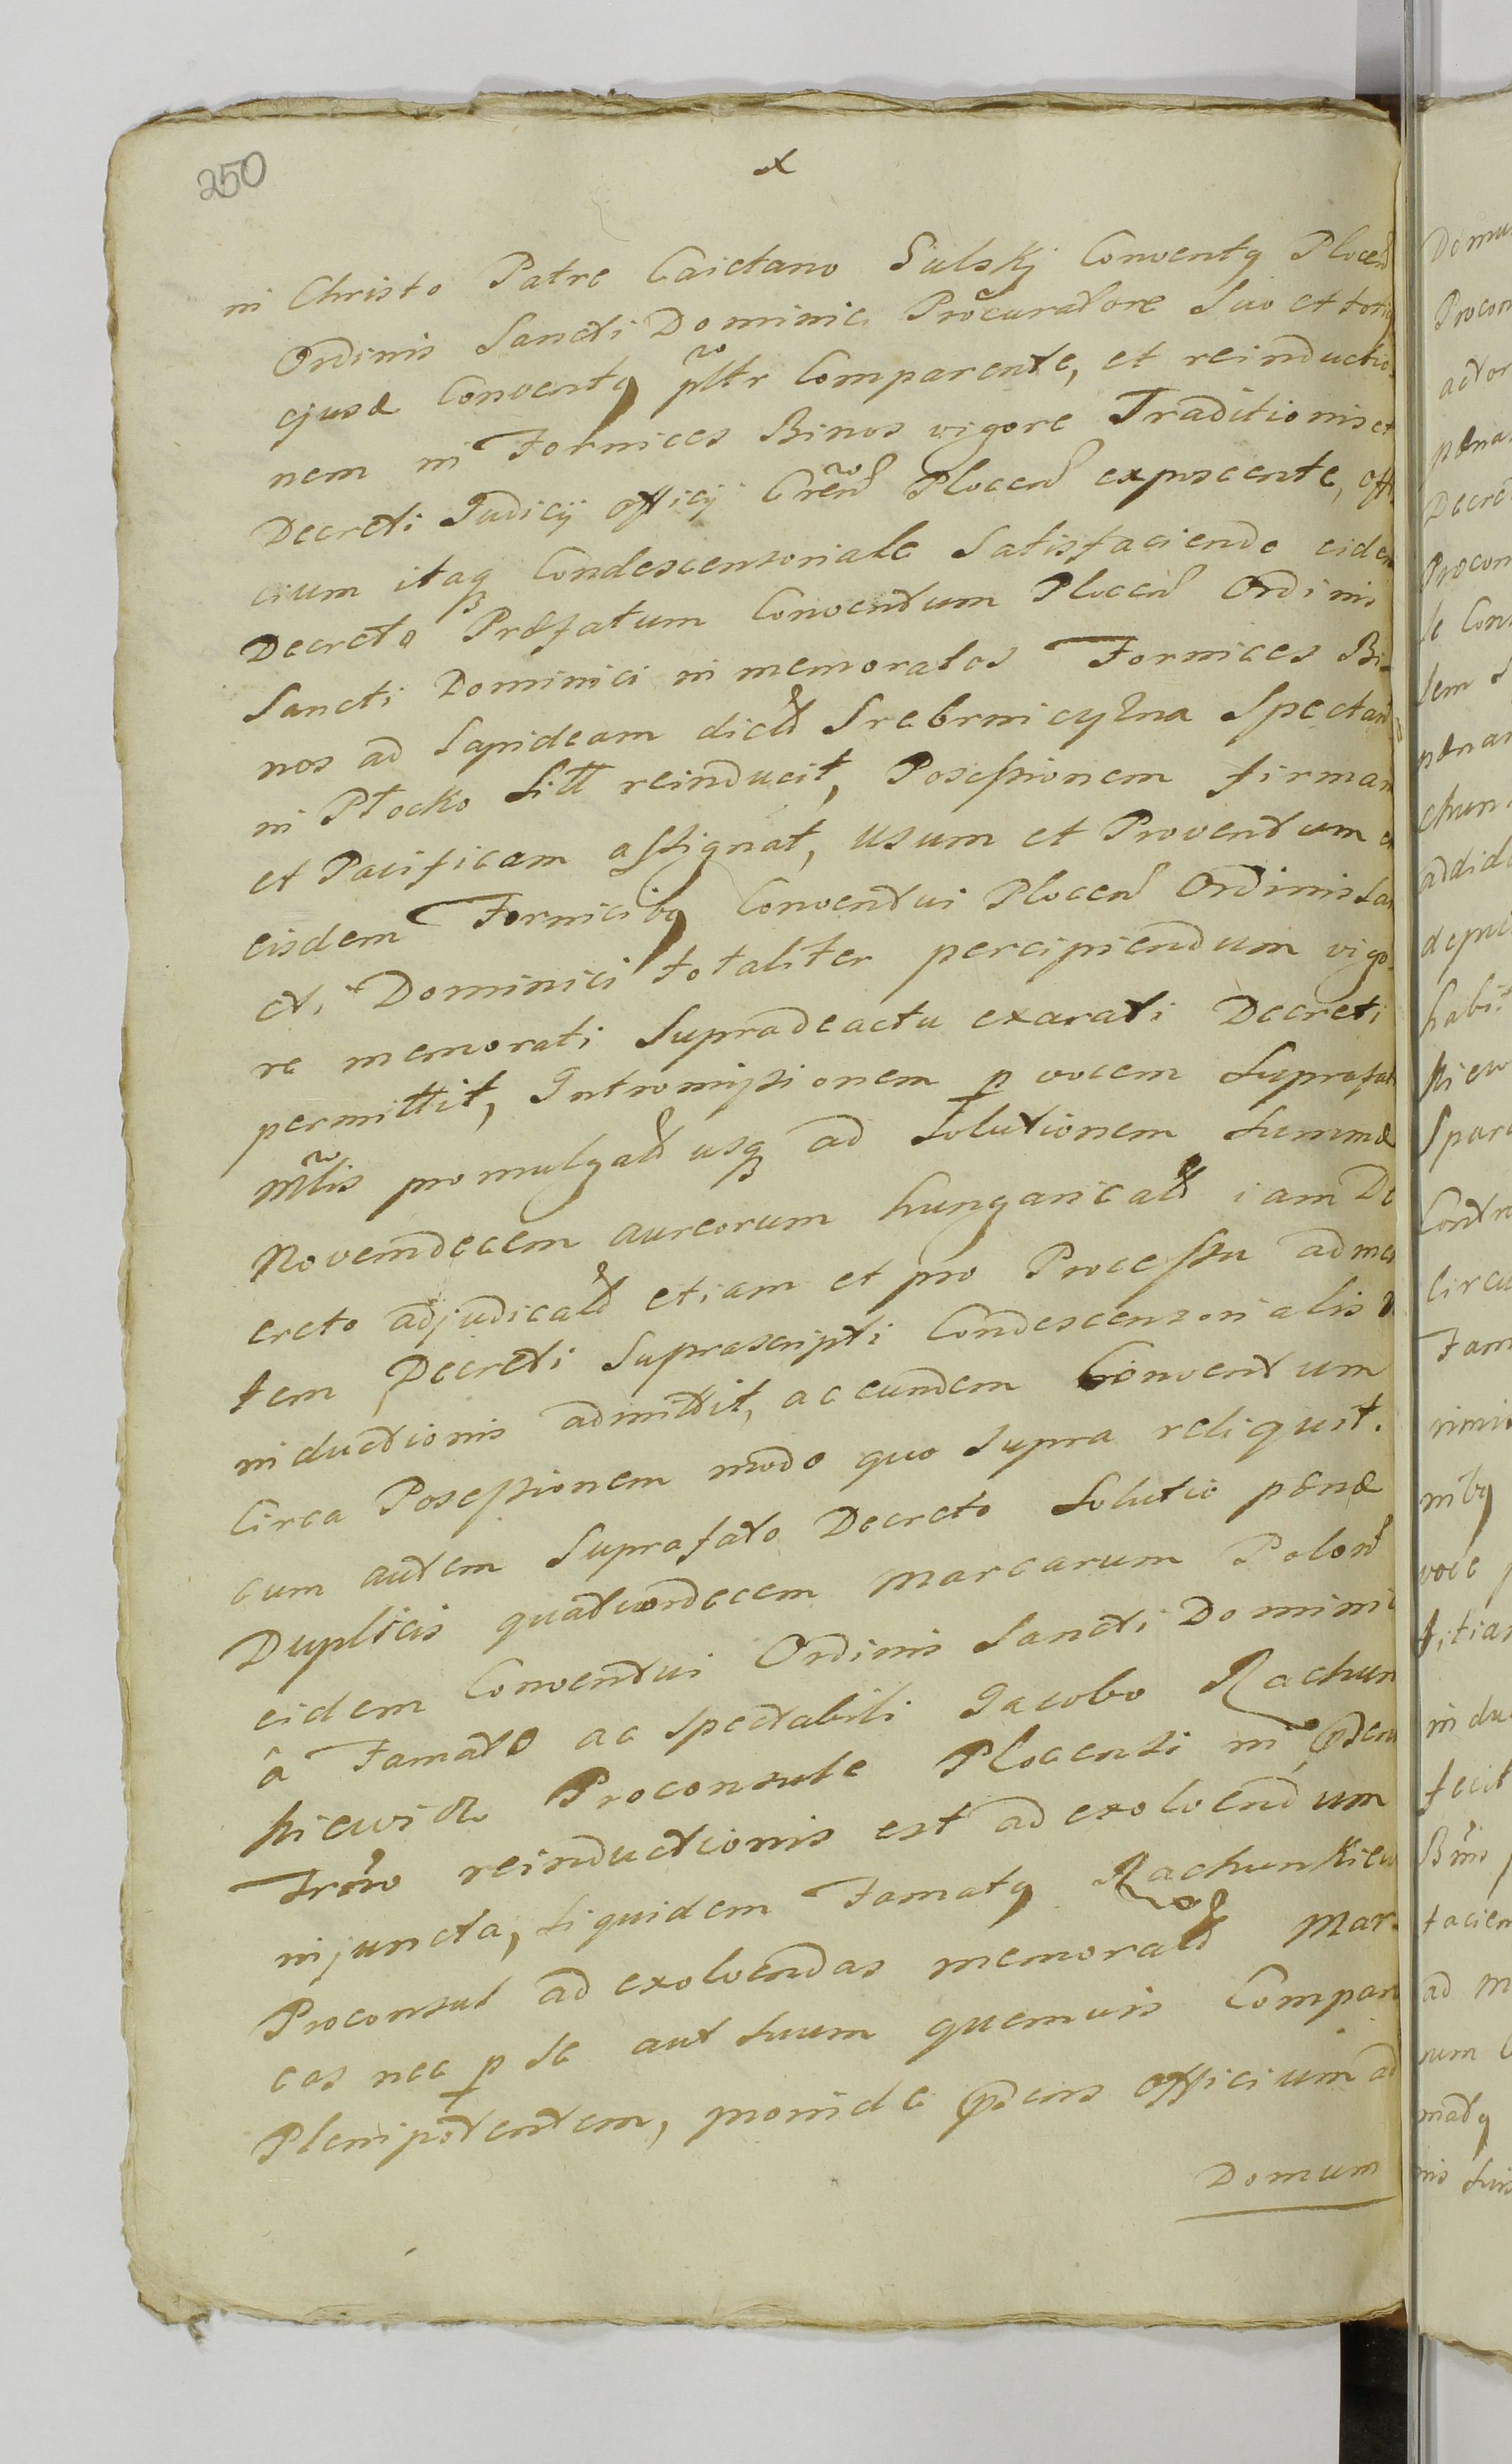 250
in Christo Patre Caietano Sulskj Conventq Plocen
Ordinis Sancti Dominici Procuratore Suo et totiq
ejusd Conventq pltr Comparente, et reinductio-
nem in Fornices Binos vigore Traditionis et
Decreti Judicij officij Cren Plocen exposcente, offi
cium itaq Condescensoriale Satisfaciendo eidem
Decreto Præfatum Conventum Plocen Ordinis
Sancti Dominici in memoratos Fornices Bi-
nos ad Lapideam dictt Srebrnicyzna Spectan
in Płocko Sitt reinducit, Possessionem firmam
et Pacificam assignat, usum et Proventum ex
eisdem Fornicibq Conventui Plocen Ordinis San
cti Dominici totaliter percipiendum vigo-
re memorati Supradeactu exarati Decreti
permittit, Intromissionem p vocem Suprafat
Mlis promulgatt usq ad Solutionem Summæ
Novemdecem aureorum hungaricatt iam De
creto adjudicatt etiam et pro Processu ad men
tem Decreti Suprascripti Condescensorialis
inductionis admittit, ac eundem Conventum
Circa Possessionem modo quo Supra reliquit.
cum autem Suprafato Decreto Solutio pænæ
Duplicis quatuordecem Marcarum Polon
eidem Conventui Ordinis Sancti Domini
â Famato ac Spectabili Jacobo Rachun
kiewicz Proconsule Plocensi in pden
Trmo reinductionis est ad exolvendum
injuncta, Siquidem Famatq Rachunkiew
Proconsul ad exolvendas memoratt Mar-
cas nec p Se aut Suum quemvis Compan
Plenipotentem, proinde pdens officium ad
Domum